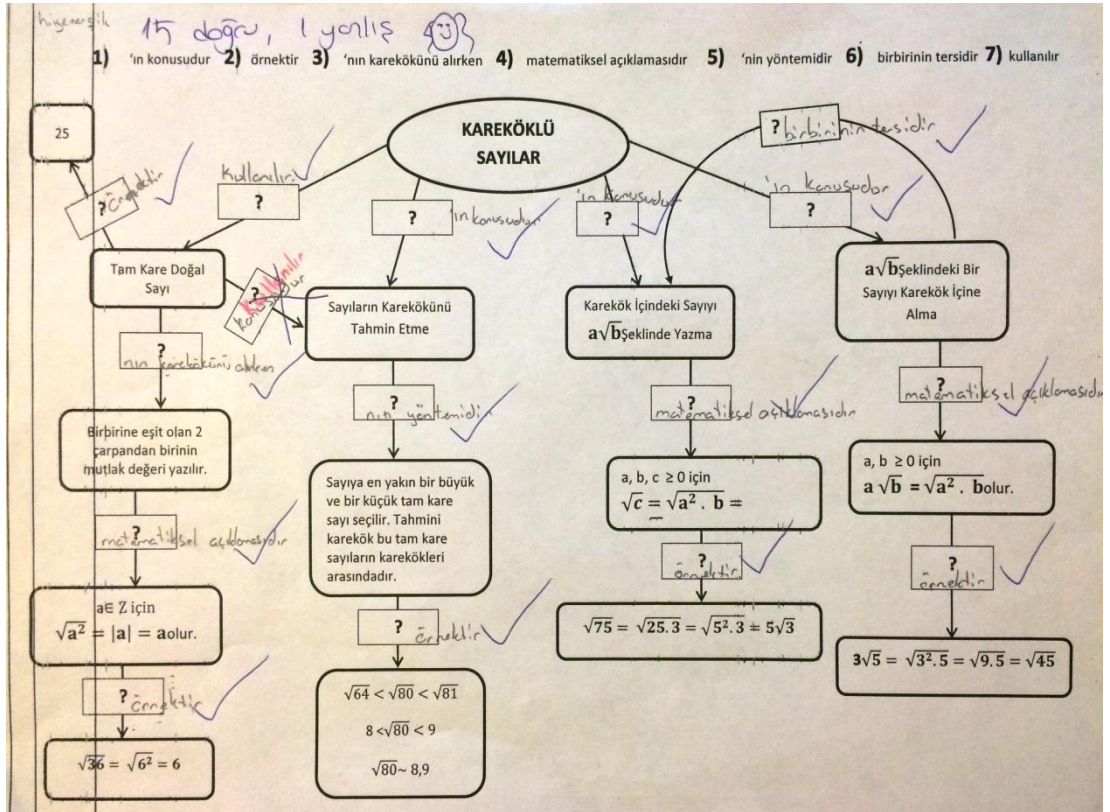 hiyerarşik
15 doğru, 1 yanlış
1) 'ın konusudur 2) örnektir 3) 'nın karekökünü alırken 4) matematiksel açıklamasıdır 5) 'nin yöntemidir 6) birbirinin tersidir 7) kullanılır
KAREKÖKLÜ
SAYILAR
? birbirinin tersidir
25
? örnektir
kullanılır
?
? 'ın konusudur
'ın konusudur
?
'ın konusudur
?
Tam Kare Doğal
Sayı
?
kullanılır
konusudur
Sayıların Karekökünü
Tahmin Etme
Karekök İçindeki Sayıyı
a√b Şeklinde Yazma
a√b Şeklindeki Bir
Sayıyı Karekök İçine
Alma
?
nın karekökünü alırken
?
nın yöntemidir
?
matematiksel açıklamasıdır
?
matematiksel açıklamasıdır
Birbirine eşit olan 2
çarpandan birinin
mutlak değeri yazılır.
Sayıya en yakın bir büyük
ve bir küçük tam kare
sayı seçilir. Tahmini
karekök bu tam kare
sayıların karekökleri
arasındadır.
a, b, c ≥ 0 için
√c = √a² . b =
a, b ≥ 0 için
a √b = √a² . b olur.
?
matematiksel açıklamasıdır
?
örnektir
?
örnektir
?
örnektir
a∈ Z için
√a² = |a| = a olur.
√75 = √25.3 = √5².3 = 5√3
3√5 = √3².5 = √9.5 = √45
?
örnektir
√64 < √80 < √81
8 <√80 < 9
√80~ 8,9
√36 = √6² = 6